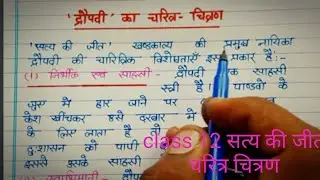 'द्रौपदी' का चरित्र - चित्रण
'सत्य की जीत' खण्डकाव्य की प्रमुख नायिका
द्रौपदी की चारित्रिक विशेषताएँ इस प्रकार हैं:-
(1) निर्भीक एवं साहसी - द्रौपदी एक साहसी
स्त्री है। पाण्डवों के
जुए में हार जाने पर
केश खींचकर उसे दरबार में
के लिए लाता है तो
दुःशासन को पापी
इससे उसके साहसी
class 12 सत्य की जीत
चरित्र चित्रण